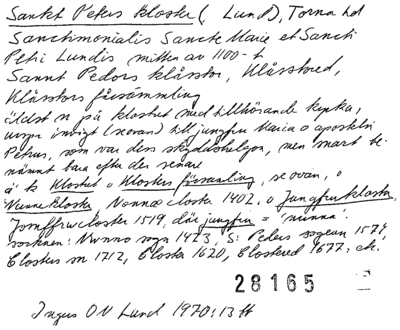 Sankt Peters kloster (Lund), Torna hd
Sanctimonialis Sancte Marie et Sancti
Petri Lundis mitten av 1100-t
Sannt Pedors klåsstor, Klåsstored,
Klåsstors försammling
äldst n på klostret med tillhörande kyrka,
urspr invigt (se ovan) till jungfru Maria o aposteln
Petrus, som var dess skyddshelgon, men snart be-
nämnt bara efter den senare
ä k Klostret o Klosters församling, se ovan, o
Nunnekloster, Nonnæ closter 1402, o Jungfrukloster,
Jomffrwcloster 1519, där jungfru = 'nunna'.
socknen: Nwnno sogn 1423, S: Peders sogenn 1571,
Closters m 1712, Closta 1620, Clostered 1677; ek.
28165
Ingers ON Lund 1970:13 ff